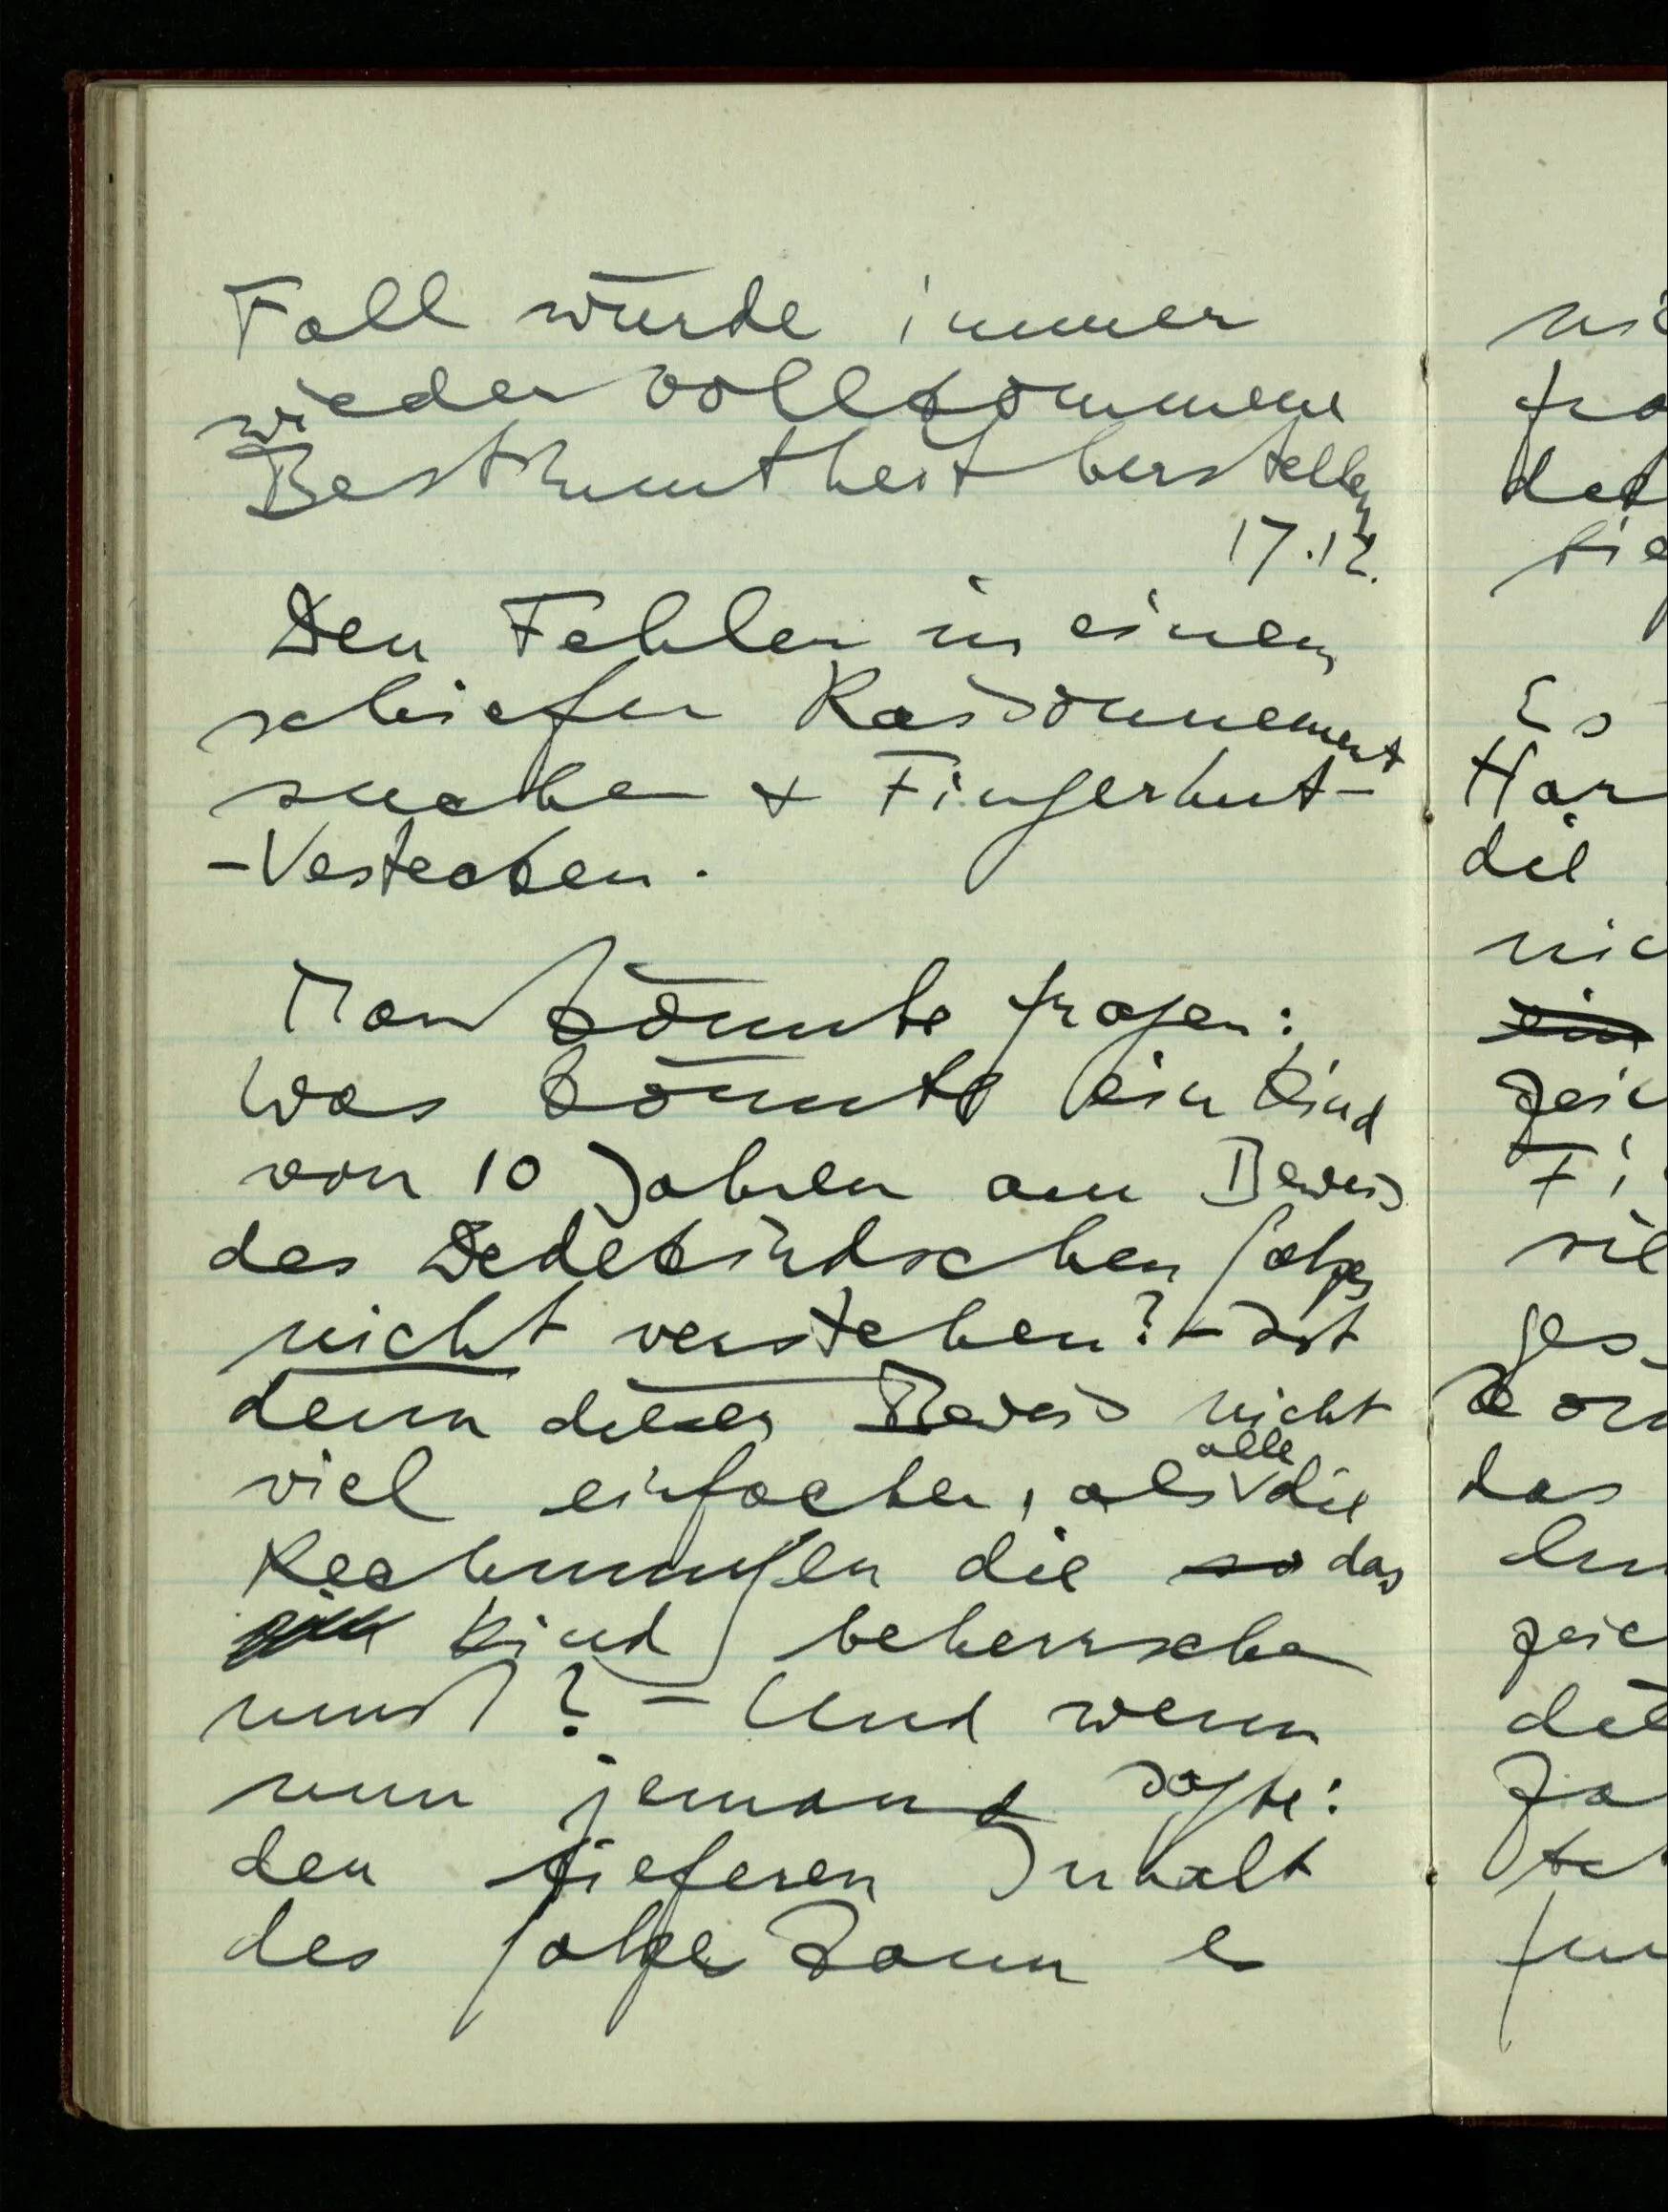 Fall würde immer
wieder vollkommene
Bestimmtheit herstellen
17.12.
Den Fehler in einem
schiefen Raisonnement
suchen & Fingerhut-
-Verstecken.
Man könnte fragen:
Was könnte ein Kind
von 10 Jahren am Beweis
des Dedekindschen Satzes
nicht verstehen? – Ist
denn dieser Beweis nicht
viel einfacher, als alle die
Rechnungen die so das
Kind beherrschen
muss? – Und wenn
nun jemand sagte:
den tieferen Inhalt
des Satzes kann es
Es
die
das